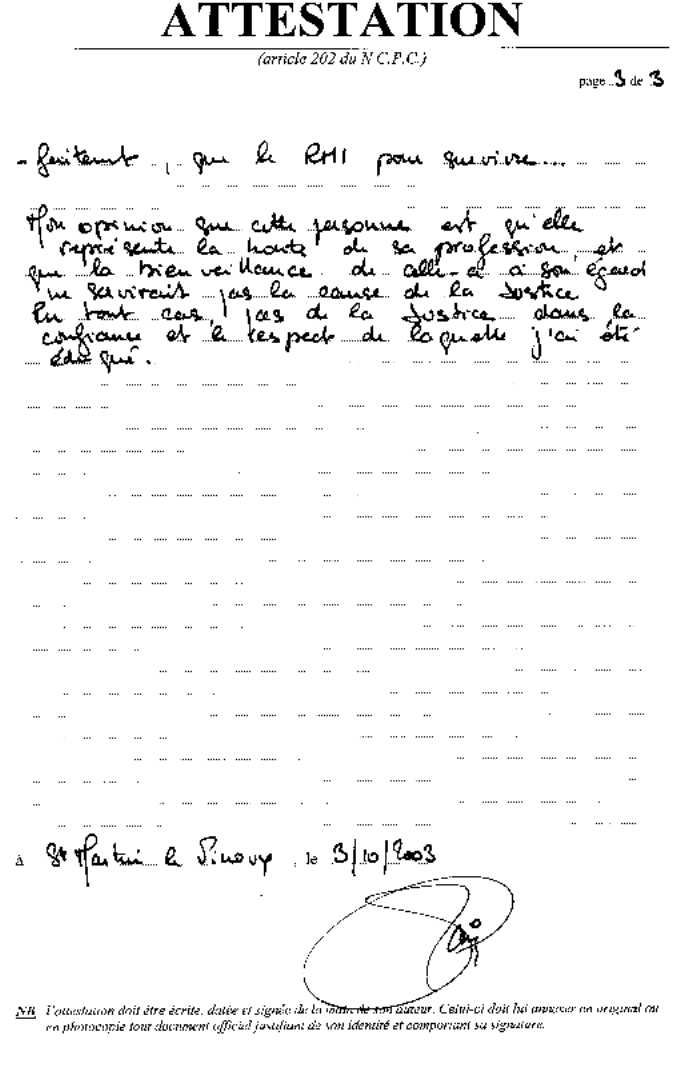 ATTESTATION
(article 202 du N C.P.C.)
page 3 de 3
, que le RMI pour survivre...
Mon opinion sur cette personne est qu'elle
représente la honte de sa profession et
que la bienveillance de celle-ci à son égard
ne servirait pas la cause de la Justice
En tout cas, pas de la Justice dans la
confiance et le respect de laquelle j'ai été
éduqué.
à St Martin le Vinoux, le 3/10/2003
NB L'attestation doit être écrite, datée et signée de la main de son auteur. Celui-ci doit lui annexer en original ou
en photocopie tout document officiel justifiant de son identité et comportant sa signature.